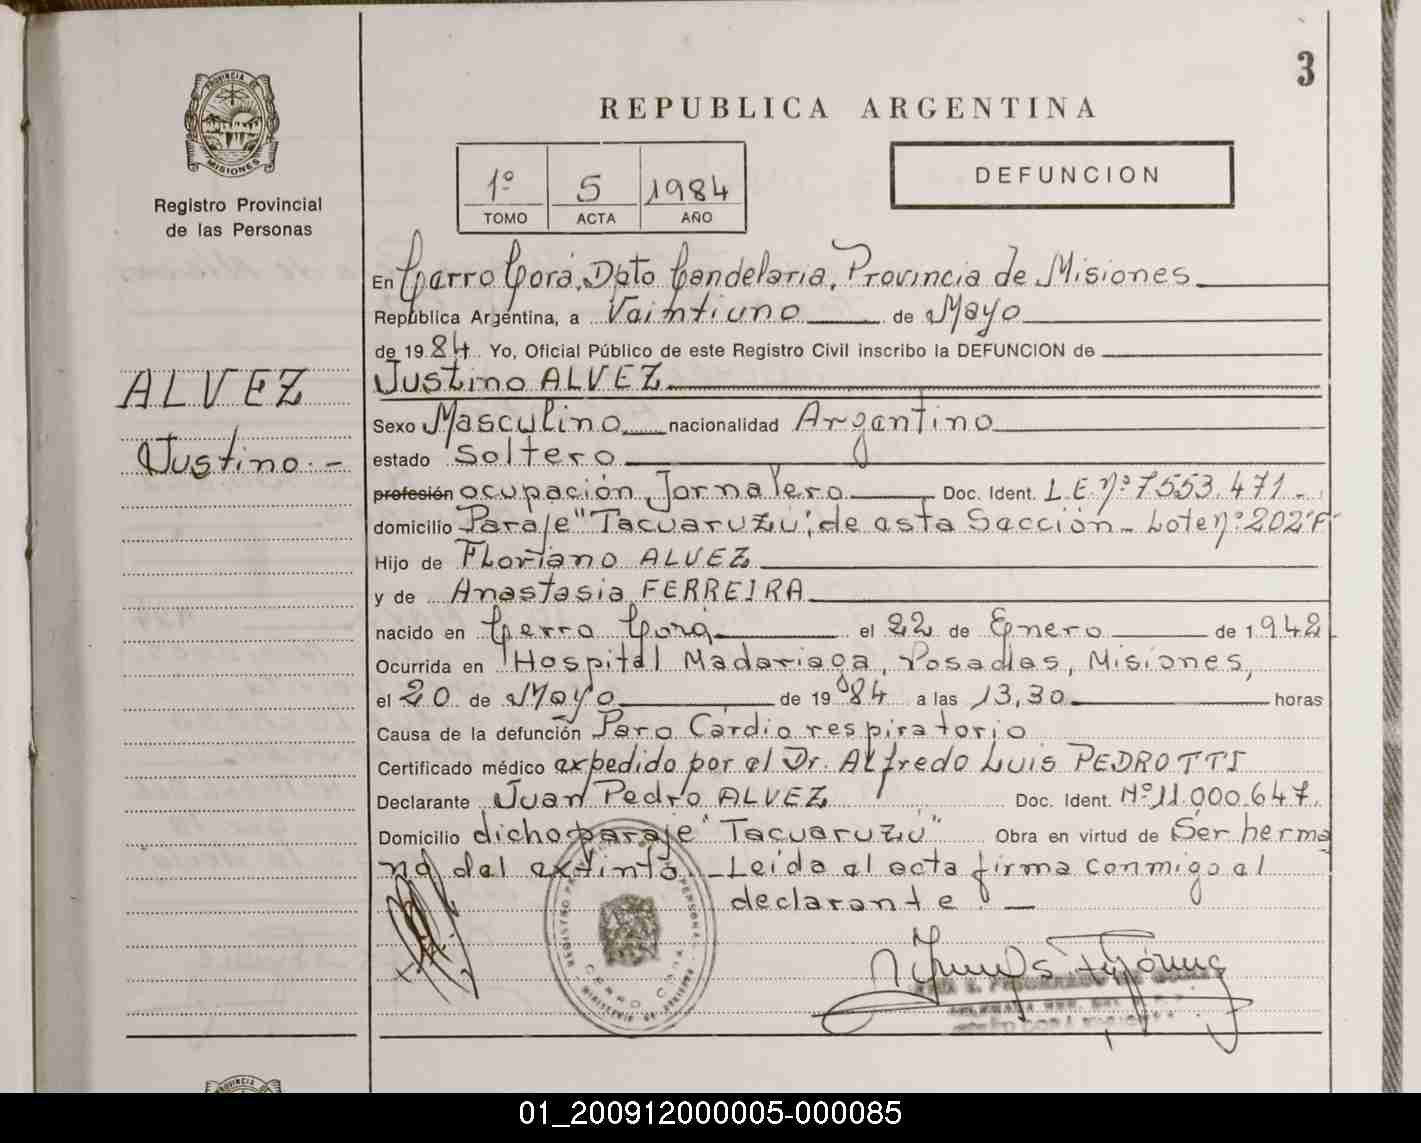 3
PROVINCIA DE
MISIONES
Registro Provincial
de las Personas
REPUBLICA ARGENTINA
1º 5 1984
TOMO ACTA AÑO
DEFUNCION
En Cerro Corá, Dpto Candelaria, Provincia de Misiones
República Argentina, a Vaintiuno de Mayo
de 1984 Yo, Oficial Público de este Registro Civil inscribo la DEFUNCION de
Justino ALVEZ
ALVEZ
Justino.-
Sexo Masculino nacionalidad Argentino
estado Soltero
profesión ocupación Jornalero Doc. Ident. L.E. Nº 7553.471-
domicilio Paraje "Tacuaruzú", de esta Sección - Lote Nº 202"F"
Hijo de Floriano ALVEZ
y de Anastasia FERREIRA
nacido en Cerro Corá el 22 de Enero de 1942
Ocurrida en Hospital Madariaga, Posadas, Misiones,
el 20 de Mayo de 1984 a las 13,30 horas
Causa de la defunción Paro Cardio respiratorio
Certificado médico expedido por el Dr. Alfredo Luis PEDROTTI
Declarante Juan Pedro ALVEZ Doc. Ident. Nº 11.000.647.
Domicilio dicho paraje "Tacuaruzú" Obra en virtud de Ser herma
no del extinto - Leida el acta firma conmigo el
declarante. -
CERRO CORA
PROVINCIA DE
01_200912000005-000085